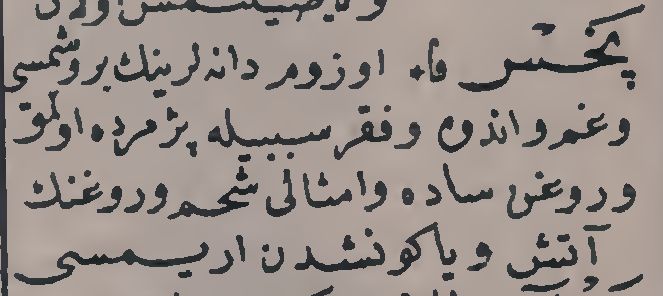 ویا صیقلمش اولان
پخس فا٠ اوزوم دانه لرینك بروشمسی
وغم واندوه وفقر سببیله پژمرده اولمق
وروغن ساده وامثالی شحم وروغنك
آتش ویا کونشدن اریمسی